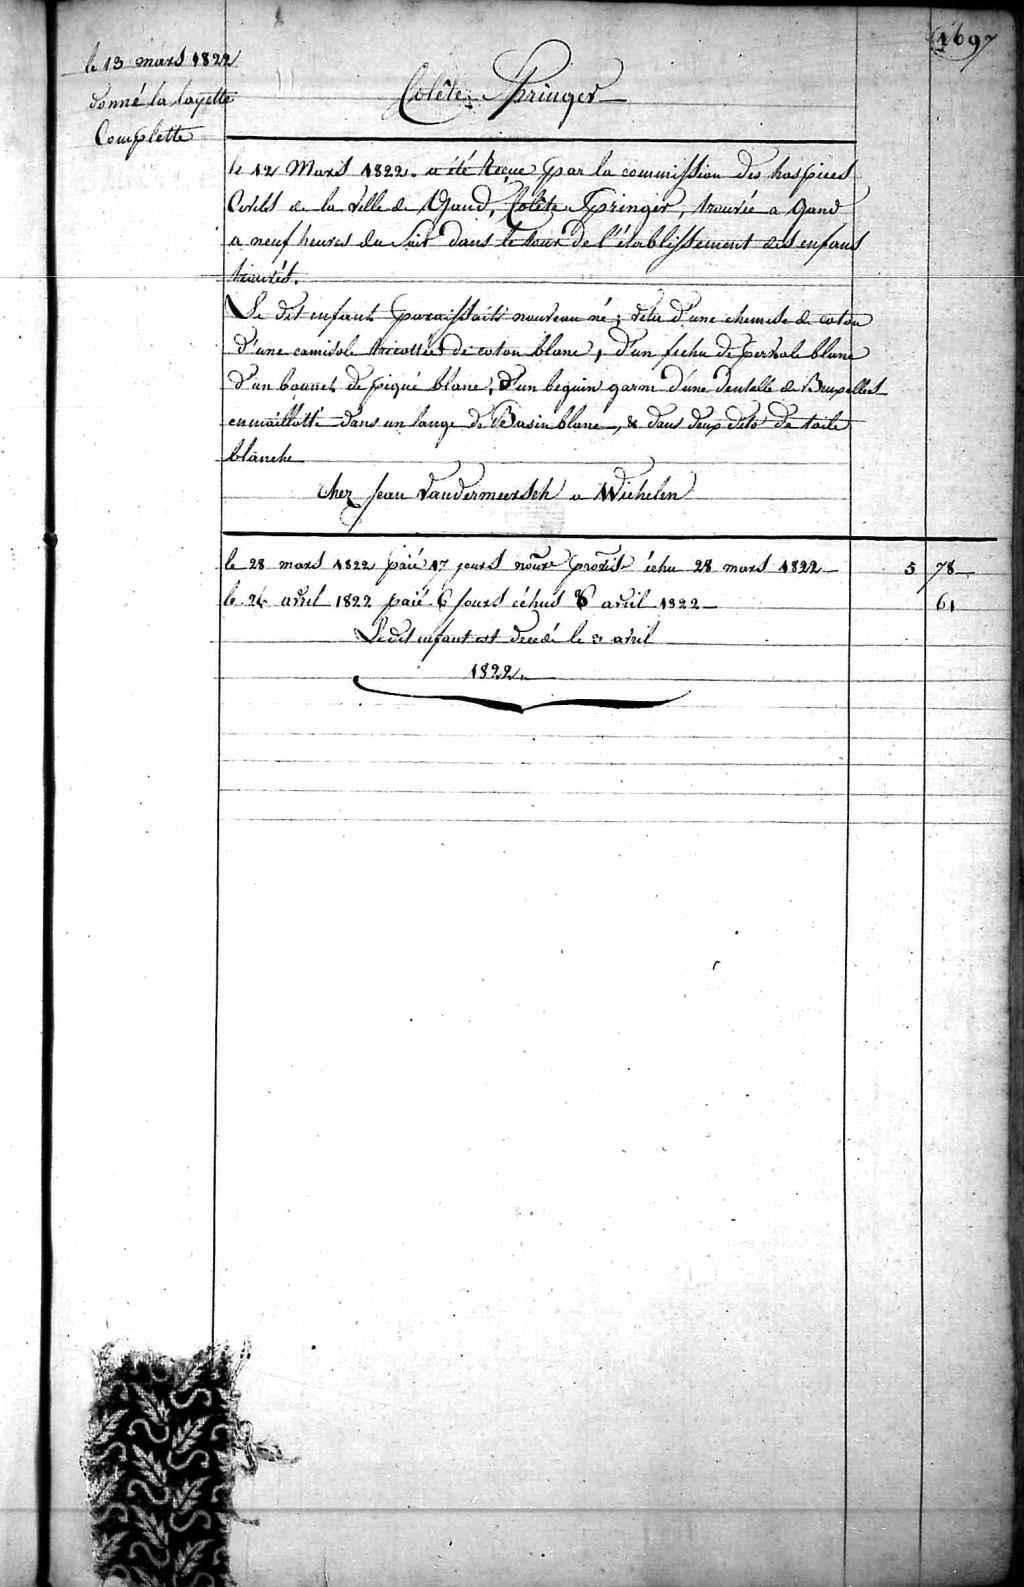 1697
le 13 mars 1822
donné la layette
Complette
Colête Springer
le 12 Mars 1822. a été Reçue par la commission des hospices
Civils de la ville de Gand, Colête Springer, trouvée a Gand
a neuf heures du Soir dans le tour de l'établissement des enfans
trouvés.
Le dit enfant paraissait nouveau né; vetu d'une chemise de coton
d'une camisole tricottée de coton blanc, d'un fichu de perkale blanc
d'un bonnet de piqué blanc, d'un beguin garni d'une dentelle de Bruxelles
enmaillotté dans un lange de Basin blanc, & dans deux dito de toile
blanche
Chez Jean Vandermeersch a Wichelen
le 28 mars 1822 paié 17 jours échu 28 mars 1822 — 5 78
le 24 avril 1822 paié 6 jours échus 3 avril 1822 — 61
Ledit enfant est decedé le 3 avril
1822.